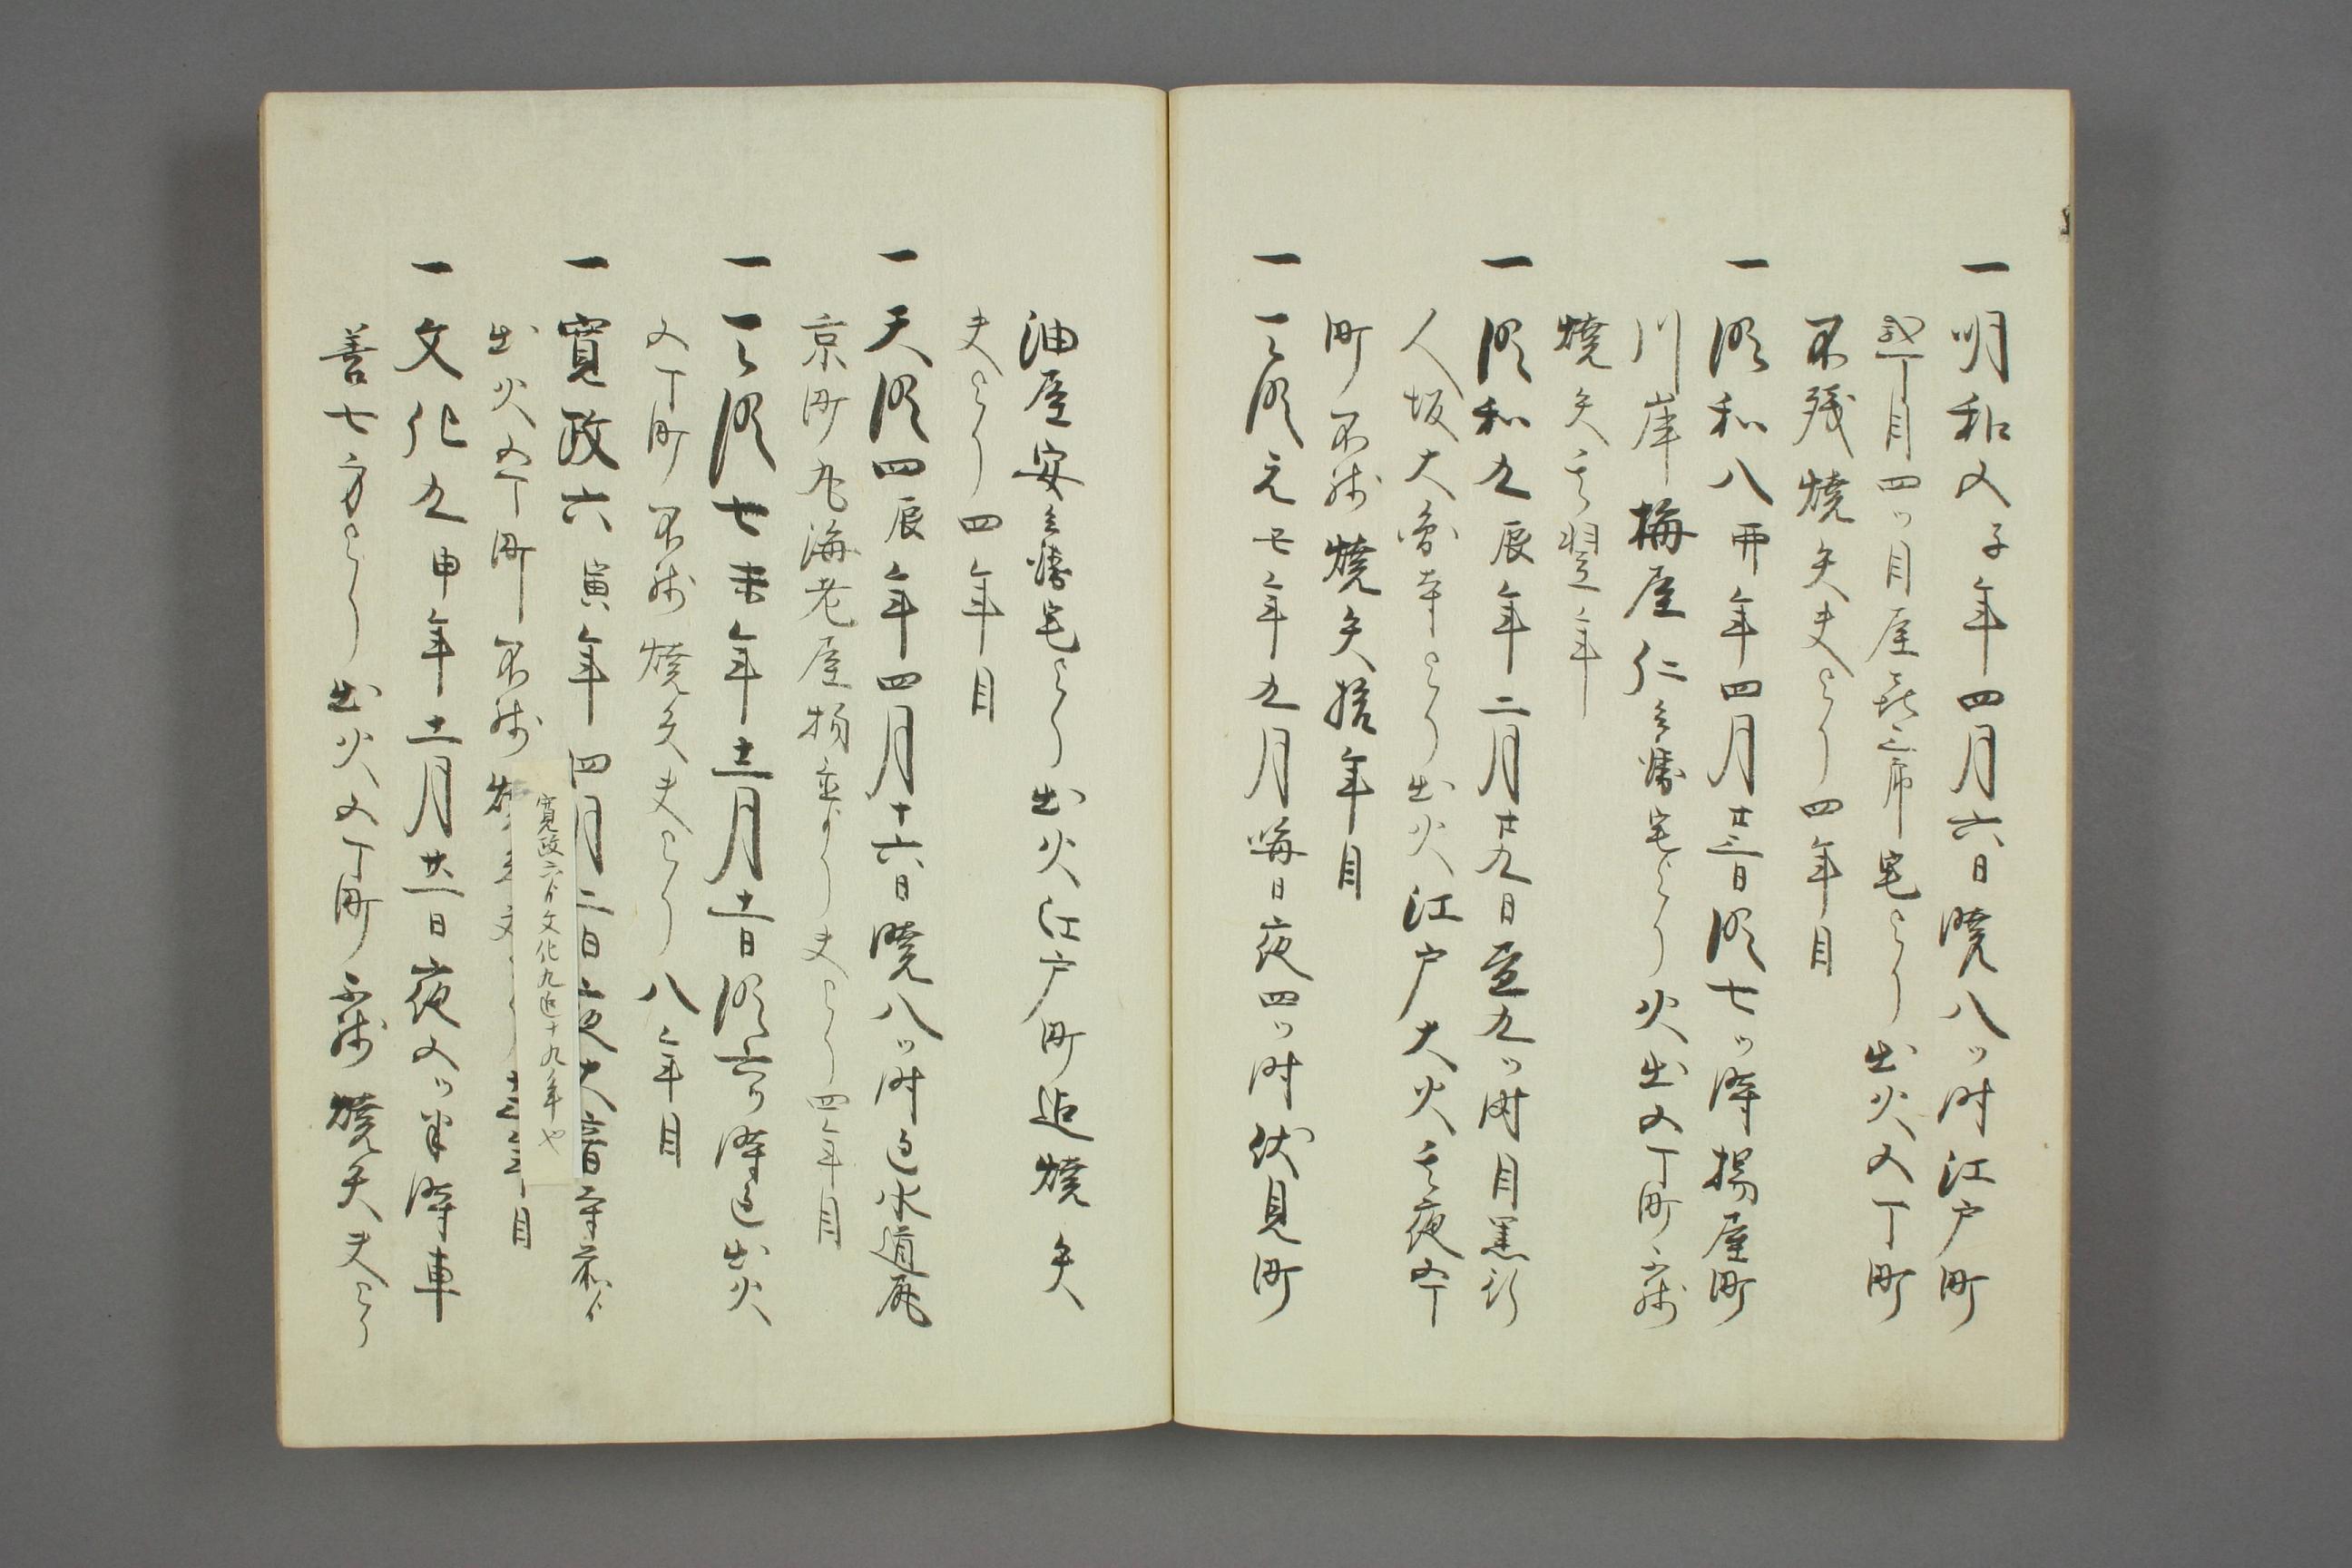 一明和五子年四月六日暁八ッ時江戸町
弐丁目四ッ目屋善三郎宅ゟ出火五丁町
不残焼失夫ゟ四年目
一同和八卯年四月廿三日同七ッ時揚屋町
川岸梅屋仁兵衛宅ゟ火出五丁町不残
焼失其翌年
一同和九辰年二月廿九日昼九ッ時目黒行
人坂大円寺ゟ出火江戸大火其夜五丁
町不残焼失拾年目
一天明元丑年九月晦日夜四ッ時伏見町
油屋安兵衛宅ゟ出火江戸町迄焼失
夫ゟ四年目
一天明四辰年四月十六日暁八ッ時迄水道尻
京町丸海老屋揚并ゟ夫ゟ四年目
一天明七未年十一月十一日同六ッ時迄出火
五丁町不残焼失夫ゟ八年目
一寛政六寅年四月二日夜大音寺前ゟ
出火五丁町不残焼
寛政六ゟ文化九迄十九年也
年目
一文化九申年十一月廿一日夜五ッ半時車
善七方ゟ出火五丁町不残焼失夫ゟ